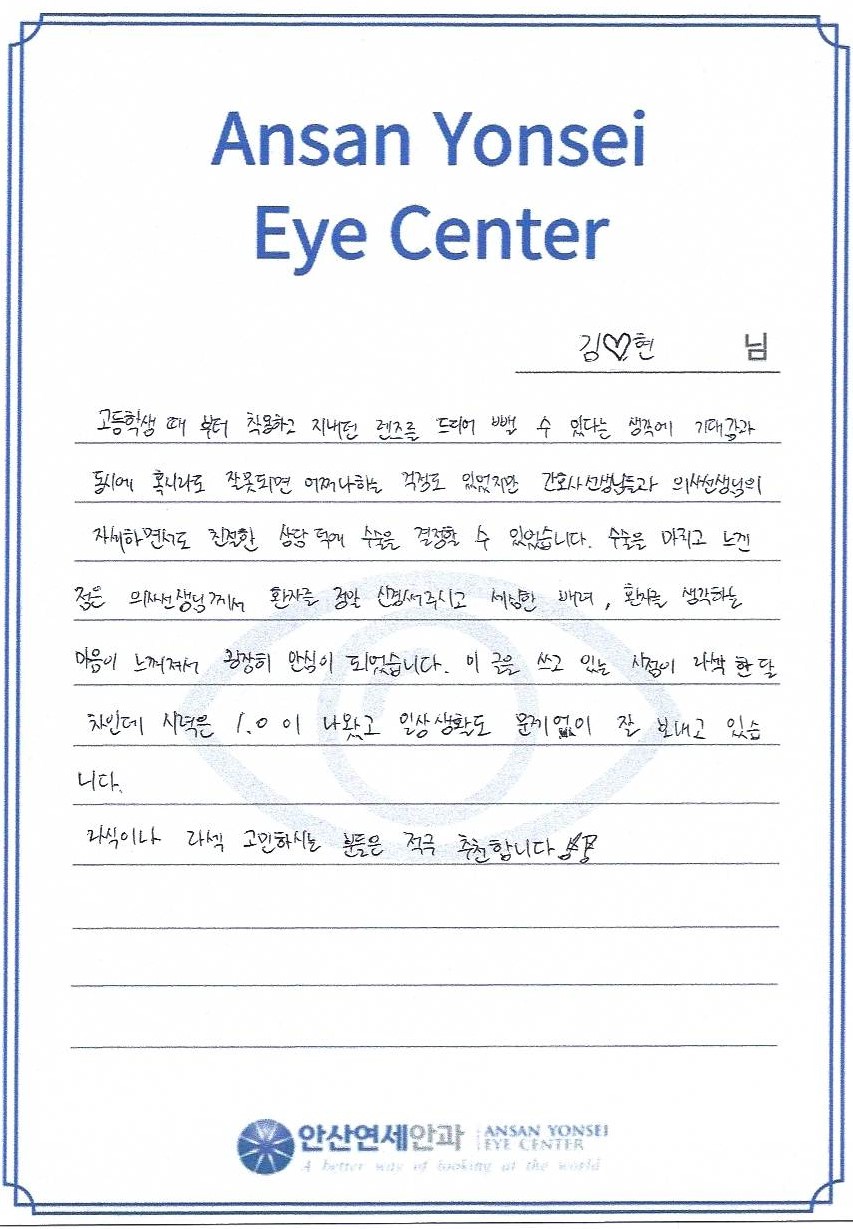 Ansan Yonsei
Eye Center
김♡현 님
고등학생 때 부터 착용하고 지내던 렌즈를 드디어 뺄 수 있다는 생각에 기대감과
동시에 혹시라도 잘못되면 어쩌나하는 걱정도 있었지만 간호사선생님들과 의사선생님의
자세하면서도 친절한 상담 덕에 수술을 결정할 수 있었습니다. 수술을 마치고 느낀
점은 의사선생님께서 환자를 정말 신경써주시고 세심한 배려, 환자를 생각하는
마음이 느껴져서 굉장히 안심이 되었습니다. 이 글을 쓰고 있는 시점이 라섹 한달
차인데 시력은 1.0이 나왔고 일상생활도 문제없이 잘 보내고 있습
니다.
라식이나 라섹 고민하시는 분들은 적극 추천합니다
안산연세안과 ANSAN YONSEI
EYE CENTER
A better way of looking at the world